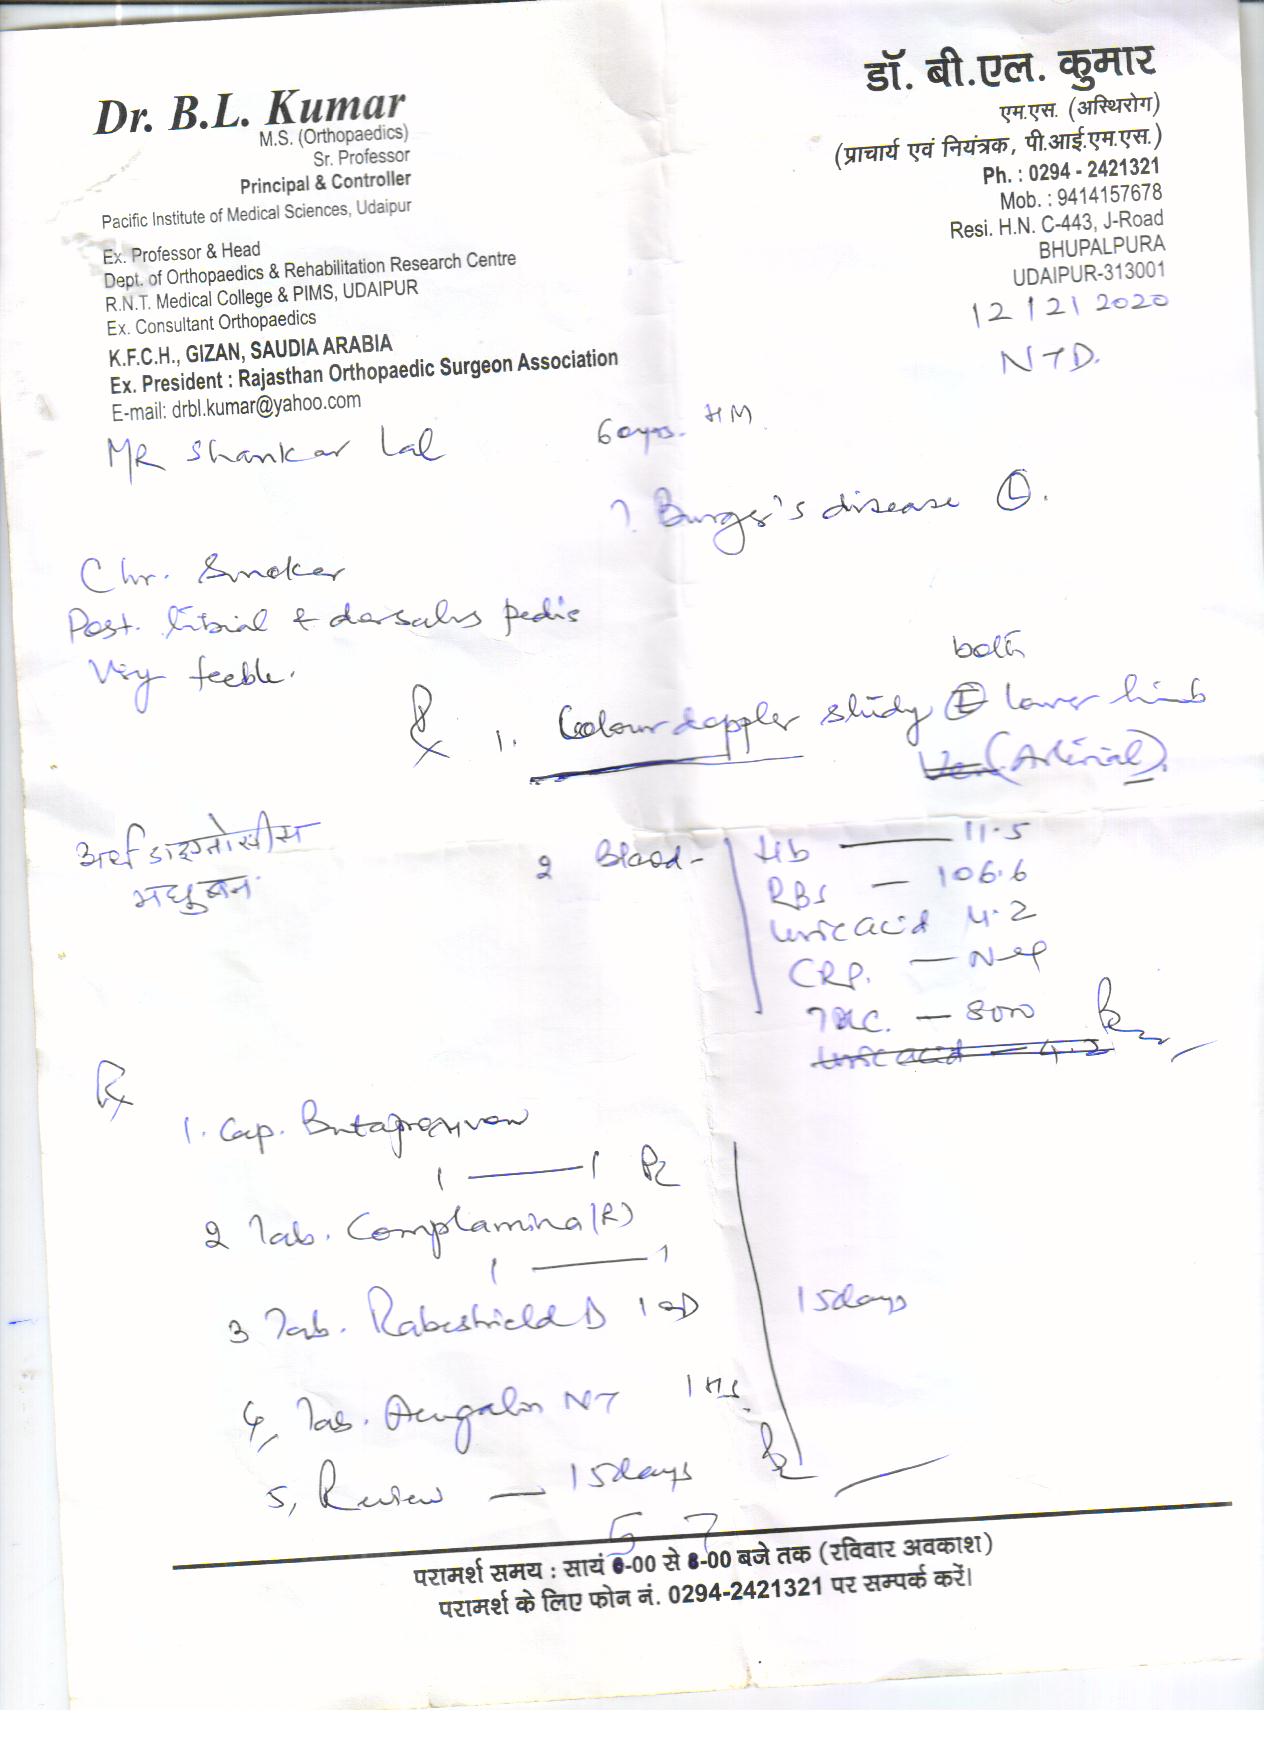 Dr. B.L. Kumar
M.S. (Orthopaedics)
Sr. Professor
Principal & Controller
Pacific Institute of Medical Sciences, Udaipur
Ex. Professor & Head
Dept. of Orthopaedics & Rehabilitation Research Centre
R.N.T. Medical College & PIMS, UDAIPUR
Ex. Consultant Orthopaedics
K.F.C.H., GIZAN, SAUDIA ARABIA
Ex. President : Rajasthan Orthopaedic Surgeon Association
E-mail: drbl.kumar@yahoo.com
डॉ. बी.एल. कुमार
एम.एस. (अस्थिरोग)
(प्राचार्य एवं नियंत्रक, पी.आई.एम.एस.)
Ph. : 0294 - 2421321
Mob. : 9414157678
Resi. H.N. C-443, J-Road
BHUPALPURA
UDAIPUR-313001
12/12/2020
NTD.
MR Shankar Lal 60yrs. HM
?. Burger's disease Ⓛ.
Chr. Smoker
Post. tibial & dorsalis pedis
Very feeble.
both
℞ 1. Colour doppler study lower limb
(Arterial).
अर्थ डाइग्नोसीस
मधुबन
2 Blood - Hb — 11.5
RBS — 106.6
Uric acid 4.2
CRP. — Neg
TLC. — 8000
Uric acid — 4.2
℞
1. Cap.
1 — 1
2 Tab. Complamina (R)
1 — 1
3 Tab. Rabeshield D 1 OD
15 days
4, Tab. NT 1 HS.
5, Review — 15 days
5 7
परामर्श समय : सायं 6-00 से 8-00 बजे तक (रविवार अवकाश)
परामर्श के लिए फोन नं. 0294-2421321 पर सम्पर्क करें।